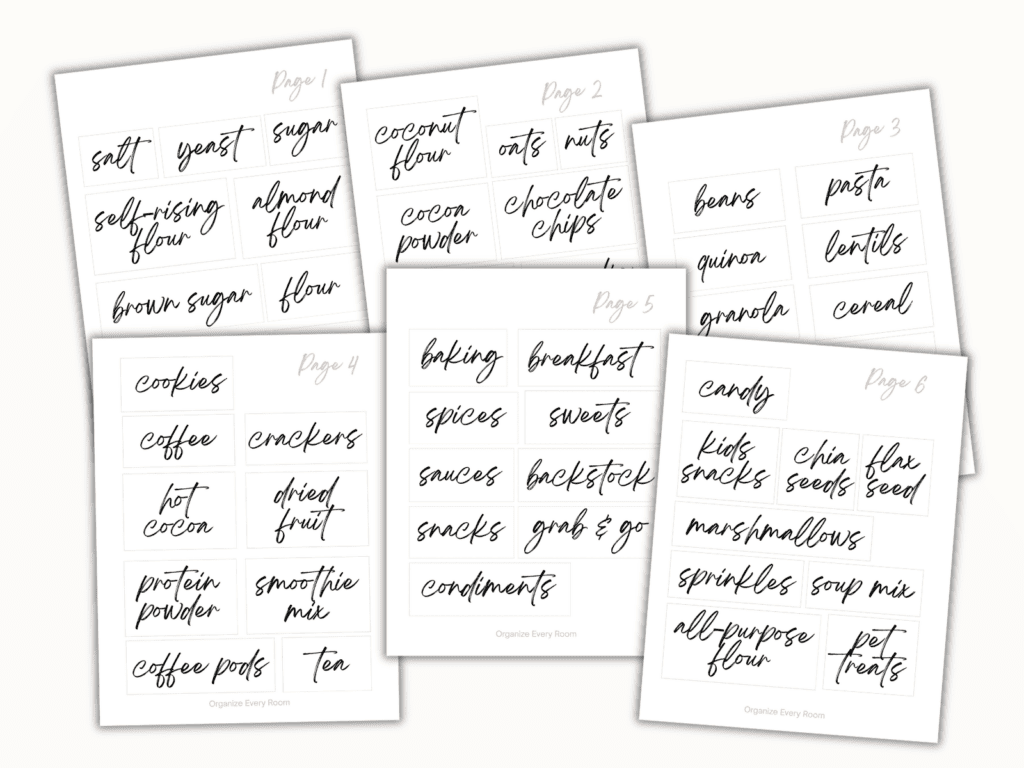 Page 1
salt
yeast
sugar
self-rising
flour
almond
flour
brown sugar
flour
Page 2
coconut
flour
oats
nuts
cocoa
powder
chocolate
chips
Page 3
beans
pasta
quinoa
lentils
granola
cereal
Page 4
cookies
coffee
crackers
hot
cocoa
dried
fruit
protein
powder
smoothie
mix
coffee pods
tea
Organize Every Room
Page 5
baking
breakfast
spices
sweets
sauces
backstock
snacks
grab & go
condiments
Organize Every Room
Page 6
candy
kids
snacks
chia
seeds
flax
seed
marshmallows
sprinkles
soup mix
all-purpose
flour
pet
treats
Organize Every Room